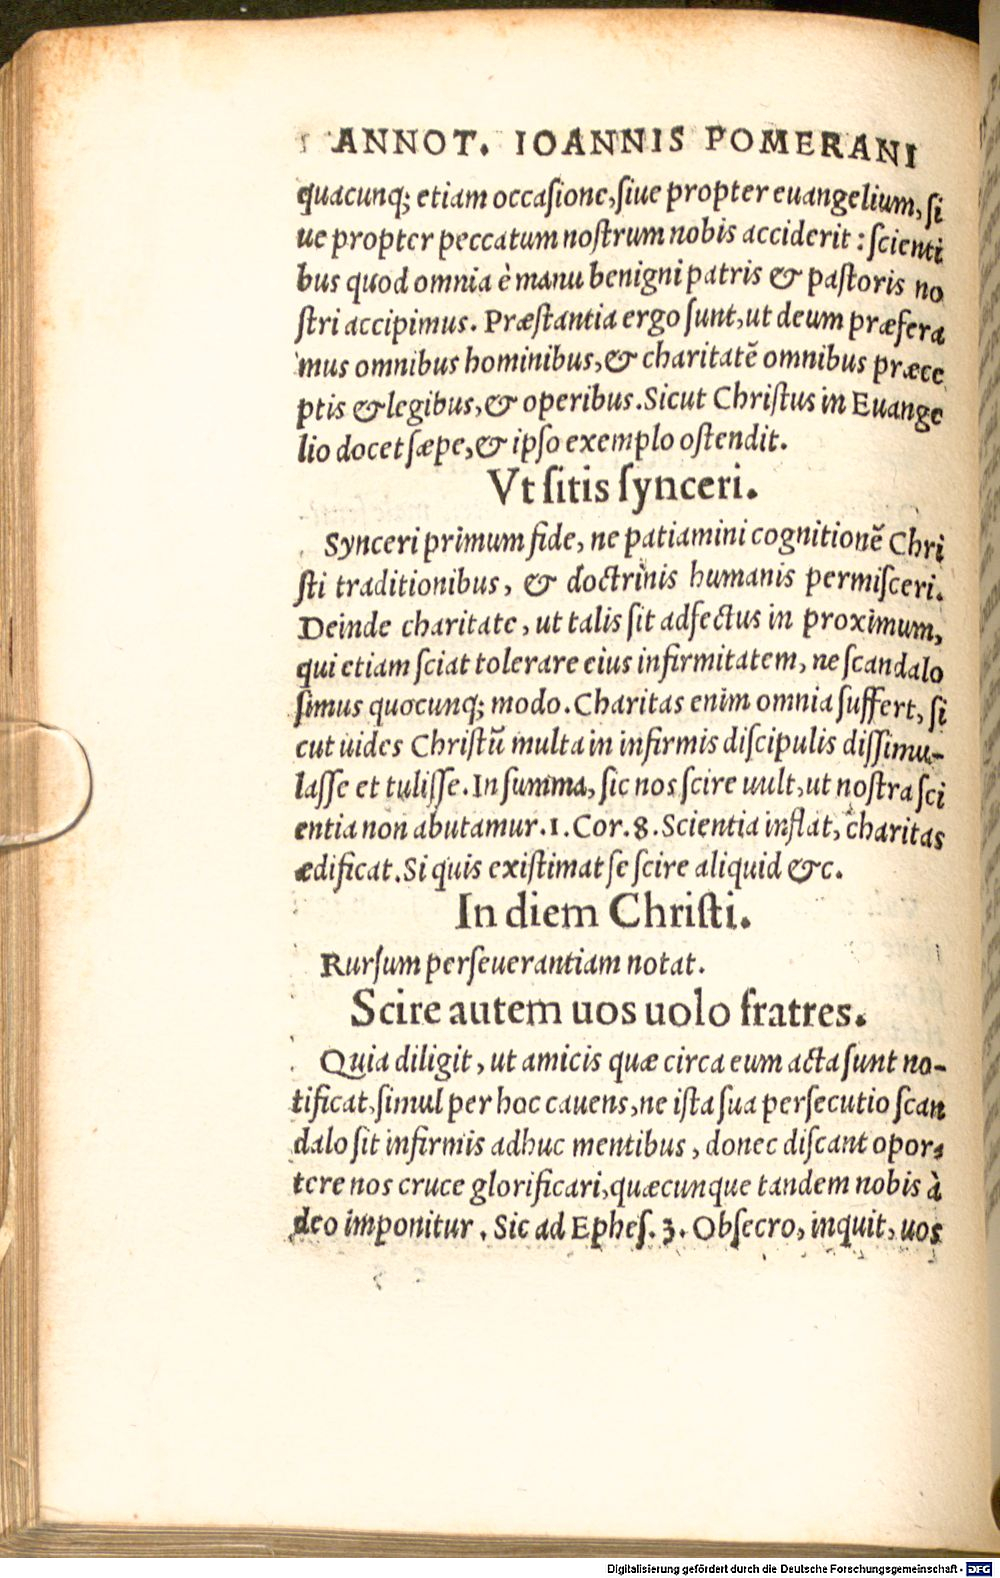 ANNOT. IOANNIS POMERANI
quacunq; etiam occaſione, ſiue propter euangelium, ſi
ue propter peccatum noſtrum nobis acciderit: ſcienti
bus quod omnia è manu benigni patris & paſtoris no
ſtri accipimus. Præſtantia ergo ſunt, ut deum præfera
mus omnibus hominibus, & charitatē omnibus præce
ptis & legibus, & operibus. Sicut Chriſtus in Euange
lio docet ſæpe, & ipſo exemplo oſtendit.
Vt ſitis ſynceri.
Synceri primum fide, ne patiamini cognitionē Chri
ſti traditionibus, & doctrinis humanis permiſceri.
Deinde charitate, ut talis ſit adfectus in proximum,
qui etiam ſciat tolerare eius infirmitatem, ne ſcandalo
ſimus quocunq; modo. Charitas enim omnia ſuffert, ſi
cut uides Chriſtū multa in infirmis diſcipulis diſſimu-
laſſe et tuliſſe. In ſumma, ſic nos ſcire uult, ut noſtra ſci
entia non abutamur. 1. Cor. 8. Scientia inflat, charitas
ædificat. Si quis exiſtimat ſe ſcire aliquid &c.
In diem Chriſti.
Rurſum perſeuerantiam notat.
Scire autem uos uolo fratres.
Quia diligit, ut amicis quæ circa eum acta ſunt no-
tificat, ſimul per hoc cauens, ne iſta ſua perſecutio ſcan
dalo ſit infirmis adhuc mentibus, donec diſcant opor-
tere nos cruce glorificari, quæcunque tandem nobis à
deo imponitur. Sic ad Epheſ. 3. Obſecro, inquit, uos
Digitalisierung gefördert durch die Deutsche Forschungsgemeinschaft - DFG